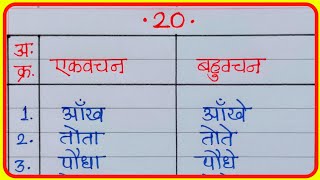 ·20·
अ. क्र. एकवचन बहुवचन
1. आँख आँखे
2. तोता तोते
3. पौधा पौधे